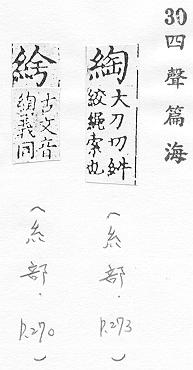 30四聲篇海
綯
大刀切糾
絞繩索也
(糸部．P.273)
古文音
綯義同
(糸部．P.270)